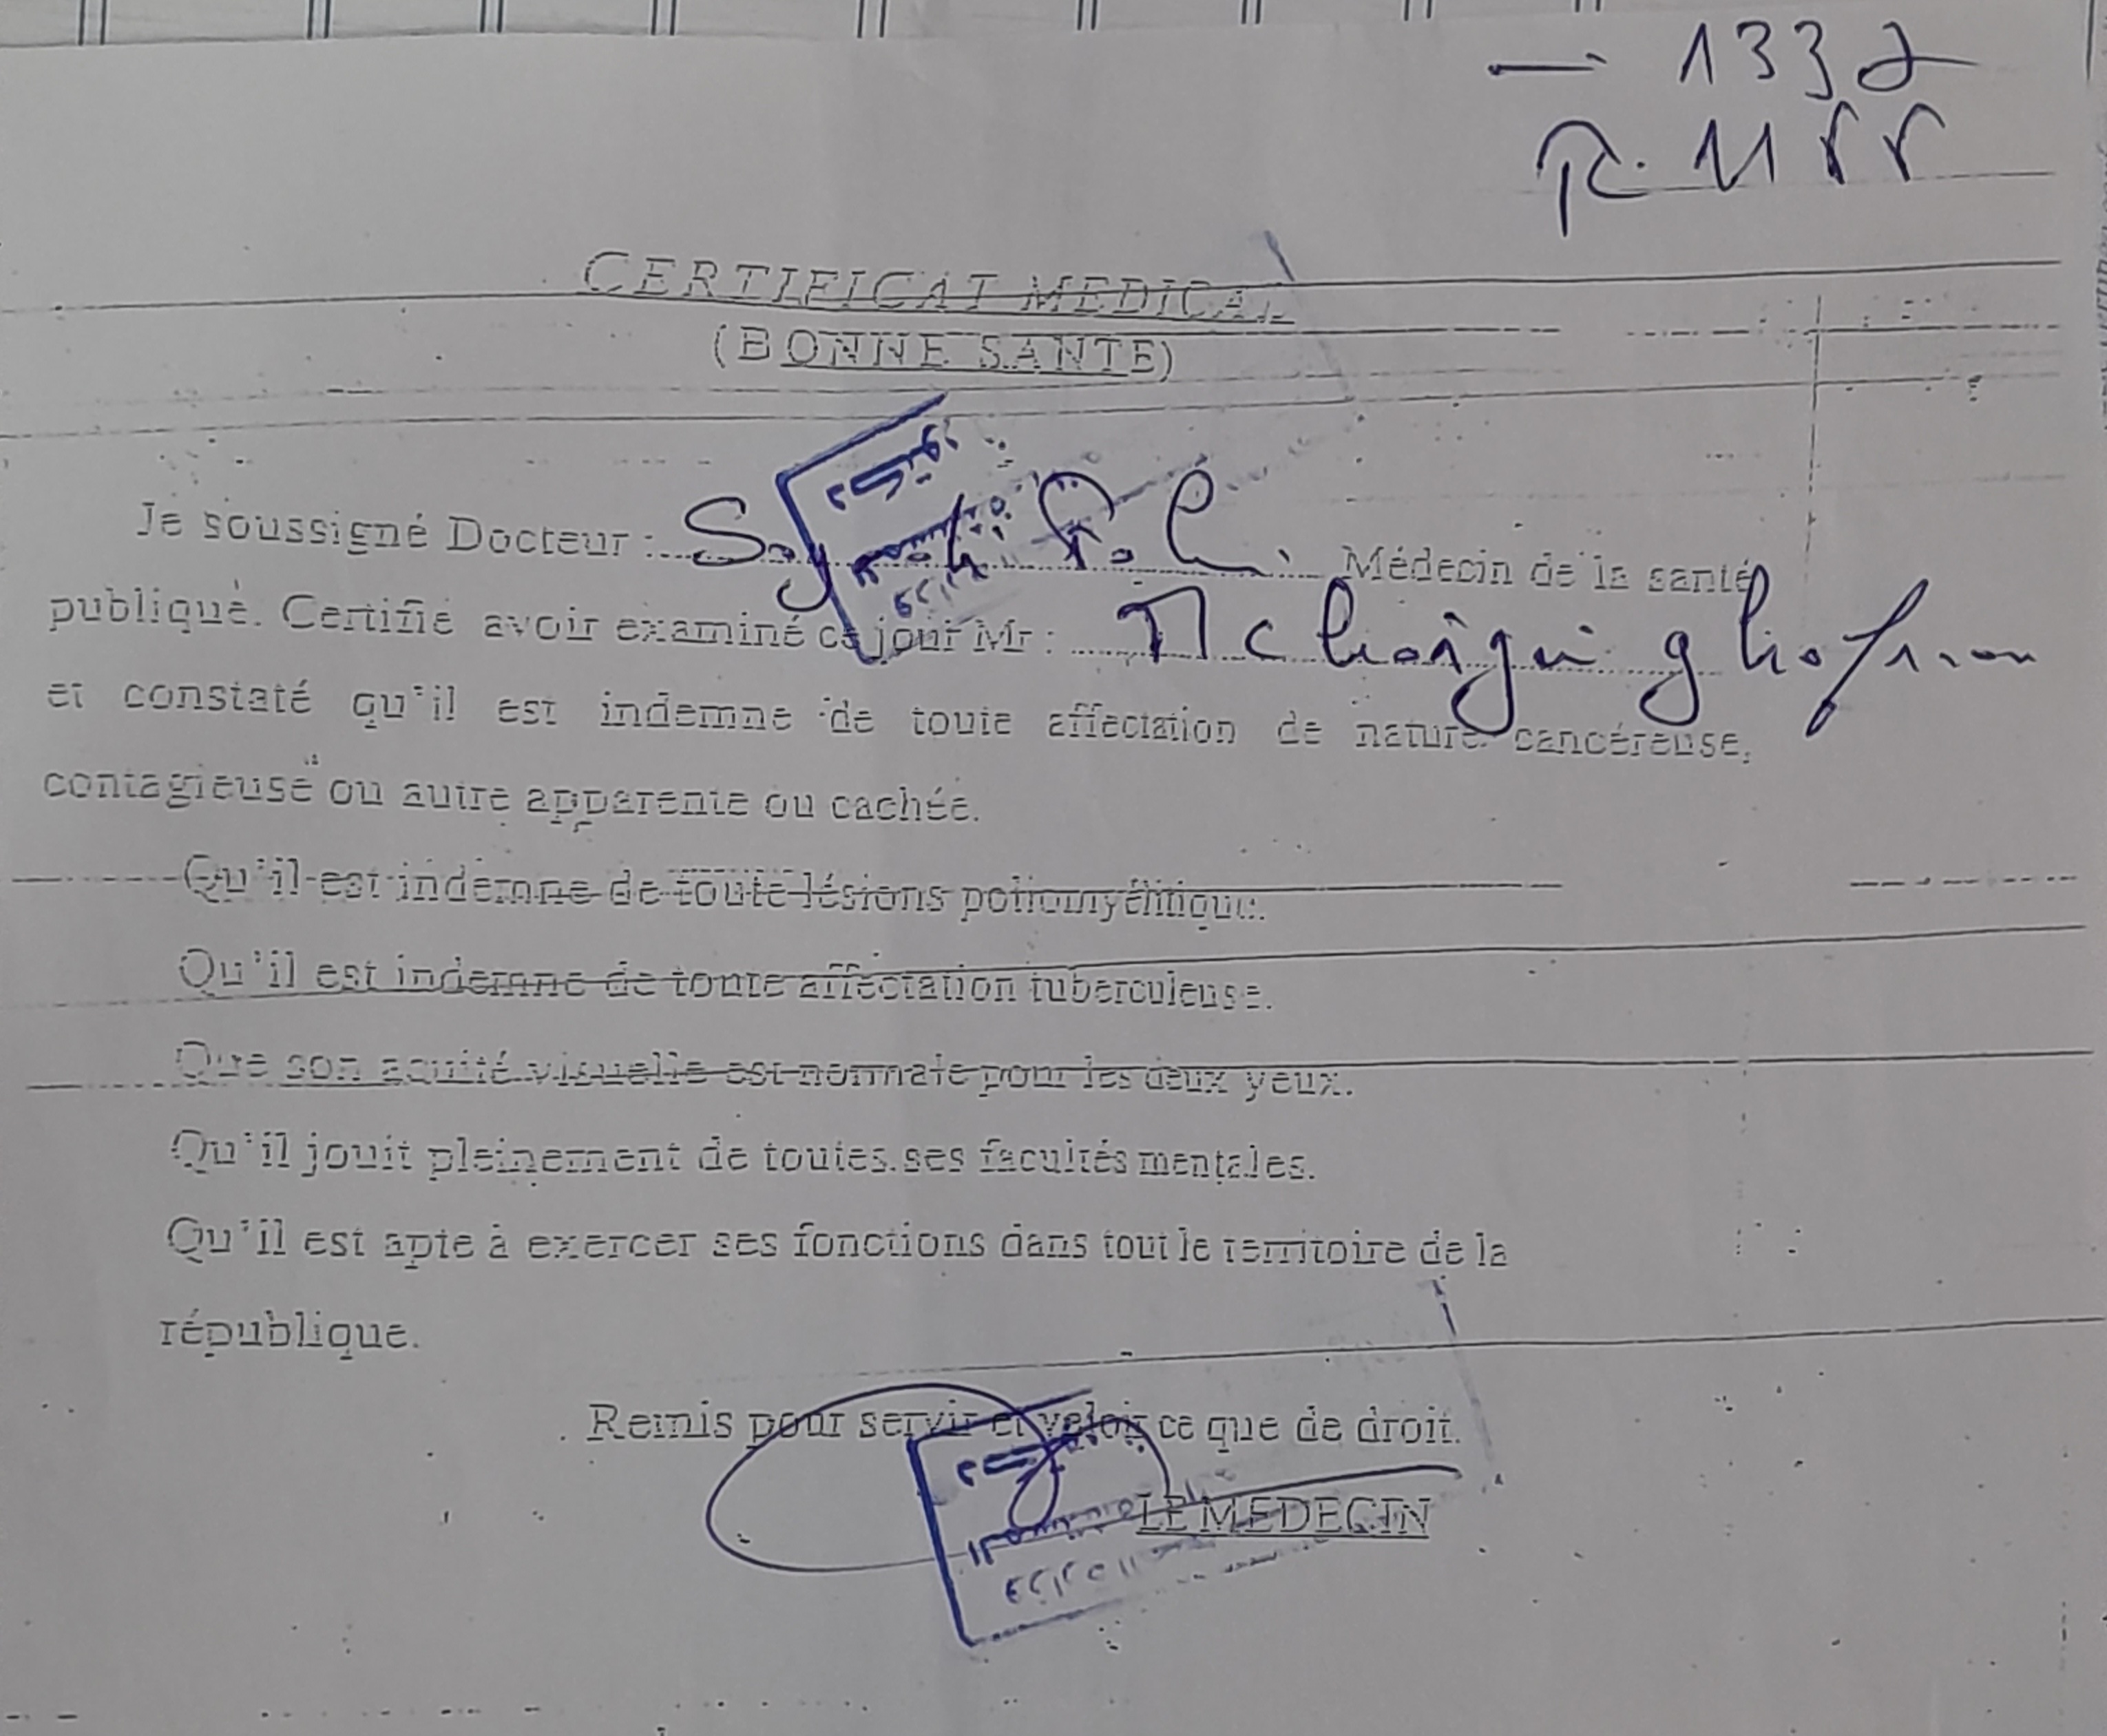 — 1332
R. 1155
CERTIFICAT MEDICAL
(BONNE SANTE)
Je soussigné Docteur : Médecin de la santé
publique. Certifié avoir examiné ce jour Mr :
et constaté qu'il est indemne de toute affectation de nature cancéreuse,
contagieuse ou autre apparente ou cachée.
Qu'il est indemne de toute lésions poliomyélitique.
Qu'il est indemne de toute affectation tuberculeuse.
Que son acuité visuelle est normale pour les deux yeux.
Qu'il jouit pleinement de toutes ses facultés mentales.
Qu'il est apte à exercer ses fonctions dans tout le territoire de la
république.
Remis pour servir et valoir ce que de droit.
LE MEDECIN